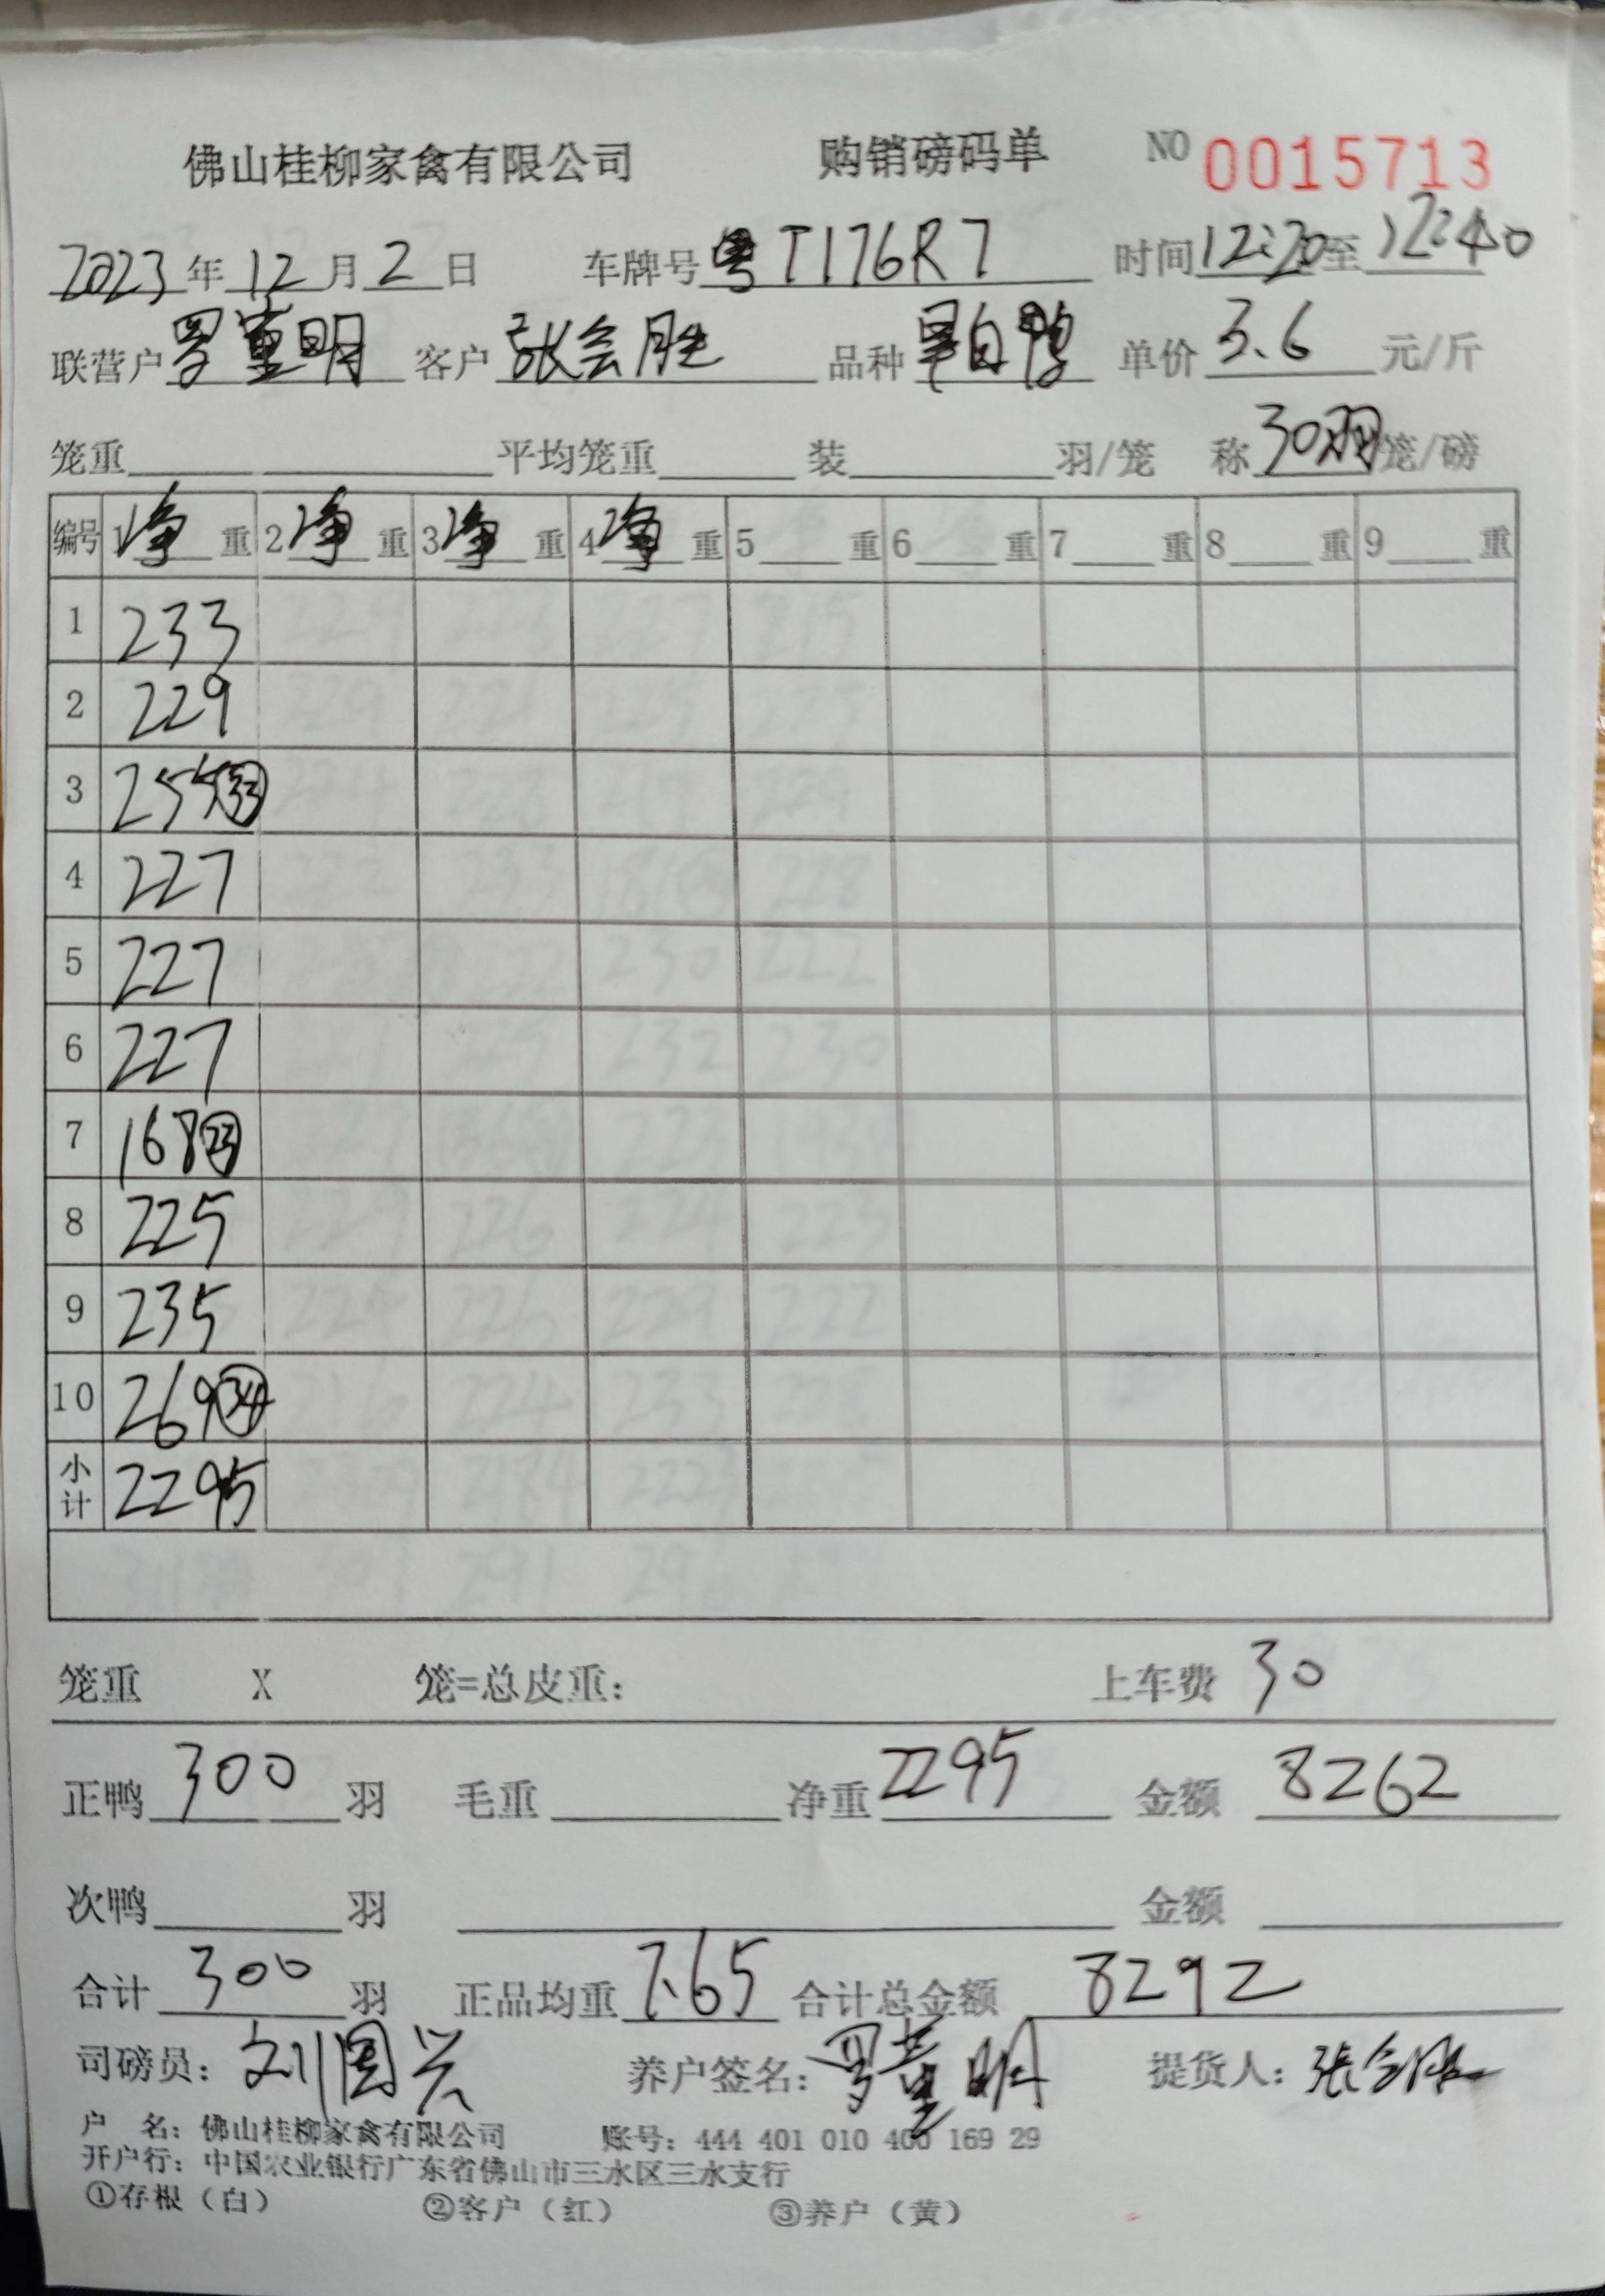 佛山桂柳家禽有限公司 购销磅码单 NO 0015713
2023年12月2日 车牌号 粤T176R7 时间12:20至12:40
联营户 罗董明 客户 张会胜 品种 白鸭 单价 3.6 元/斤
笼重 平均笼重 装 羽/笼 称30羽笼/磅
编号 1净重 2净重 3净重 4净重 5重 6重 7重 8重 9重
1 233
2 229
3 255 33
4 227
5 227
6 227
7 168 23
8 225
9 235
10 269 34
小计 2295
笼重 X 笼=总皮重: 上车费 30
正鸭 300 羽 毛重 净重 2295 金额 8262
次鸭 羽 金额
合计 300 羽 正品均重 7.65 合计总金额 8292
司磅员: 刘国兴 养户签名: 罗董明 提货人: 张会胜
户 名: 佛山桂柳家禽有限公司 账号: 444 401 010 400 169 29
开户行: 中国农业银行广东省佛山市三水区三水支行
①存根(白) ②客户(红) ③养户(黄)